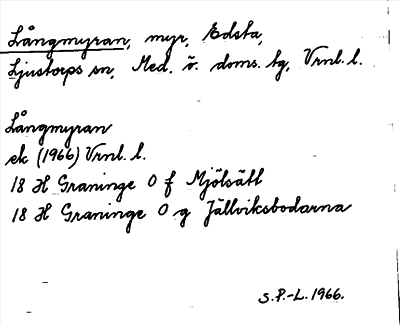 Långmyran, myr, Edsta,
Ljustorps sn, Med. ö. doms. tg, Vrnl. l.
Långmyran
ek (1966) Vrnl. l.
18 H Graninge O f Mjölsätt
18 H Graninge O g Jällviksbodarna
S.P.-L. 1966.